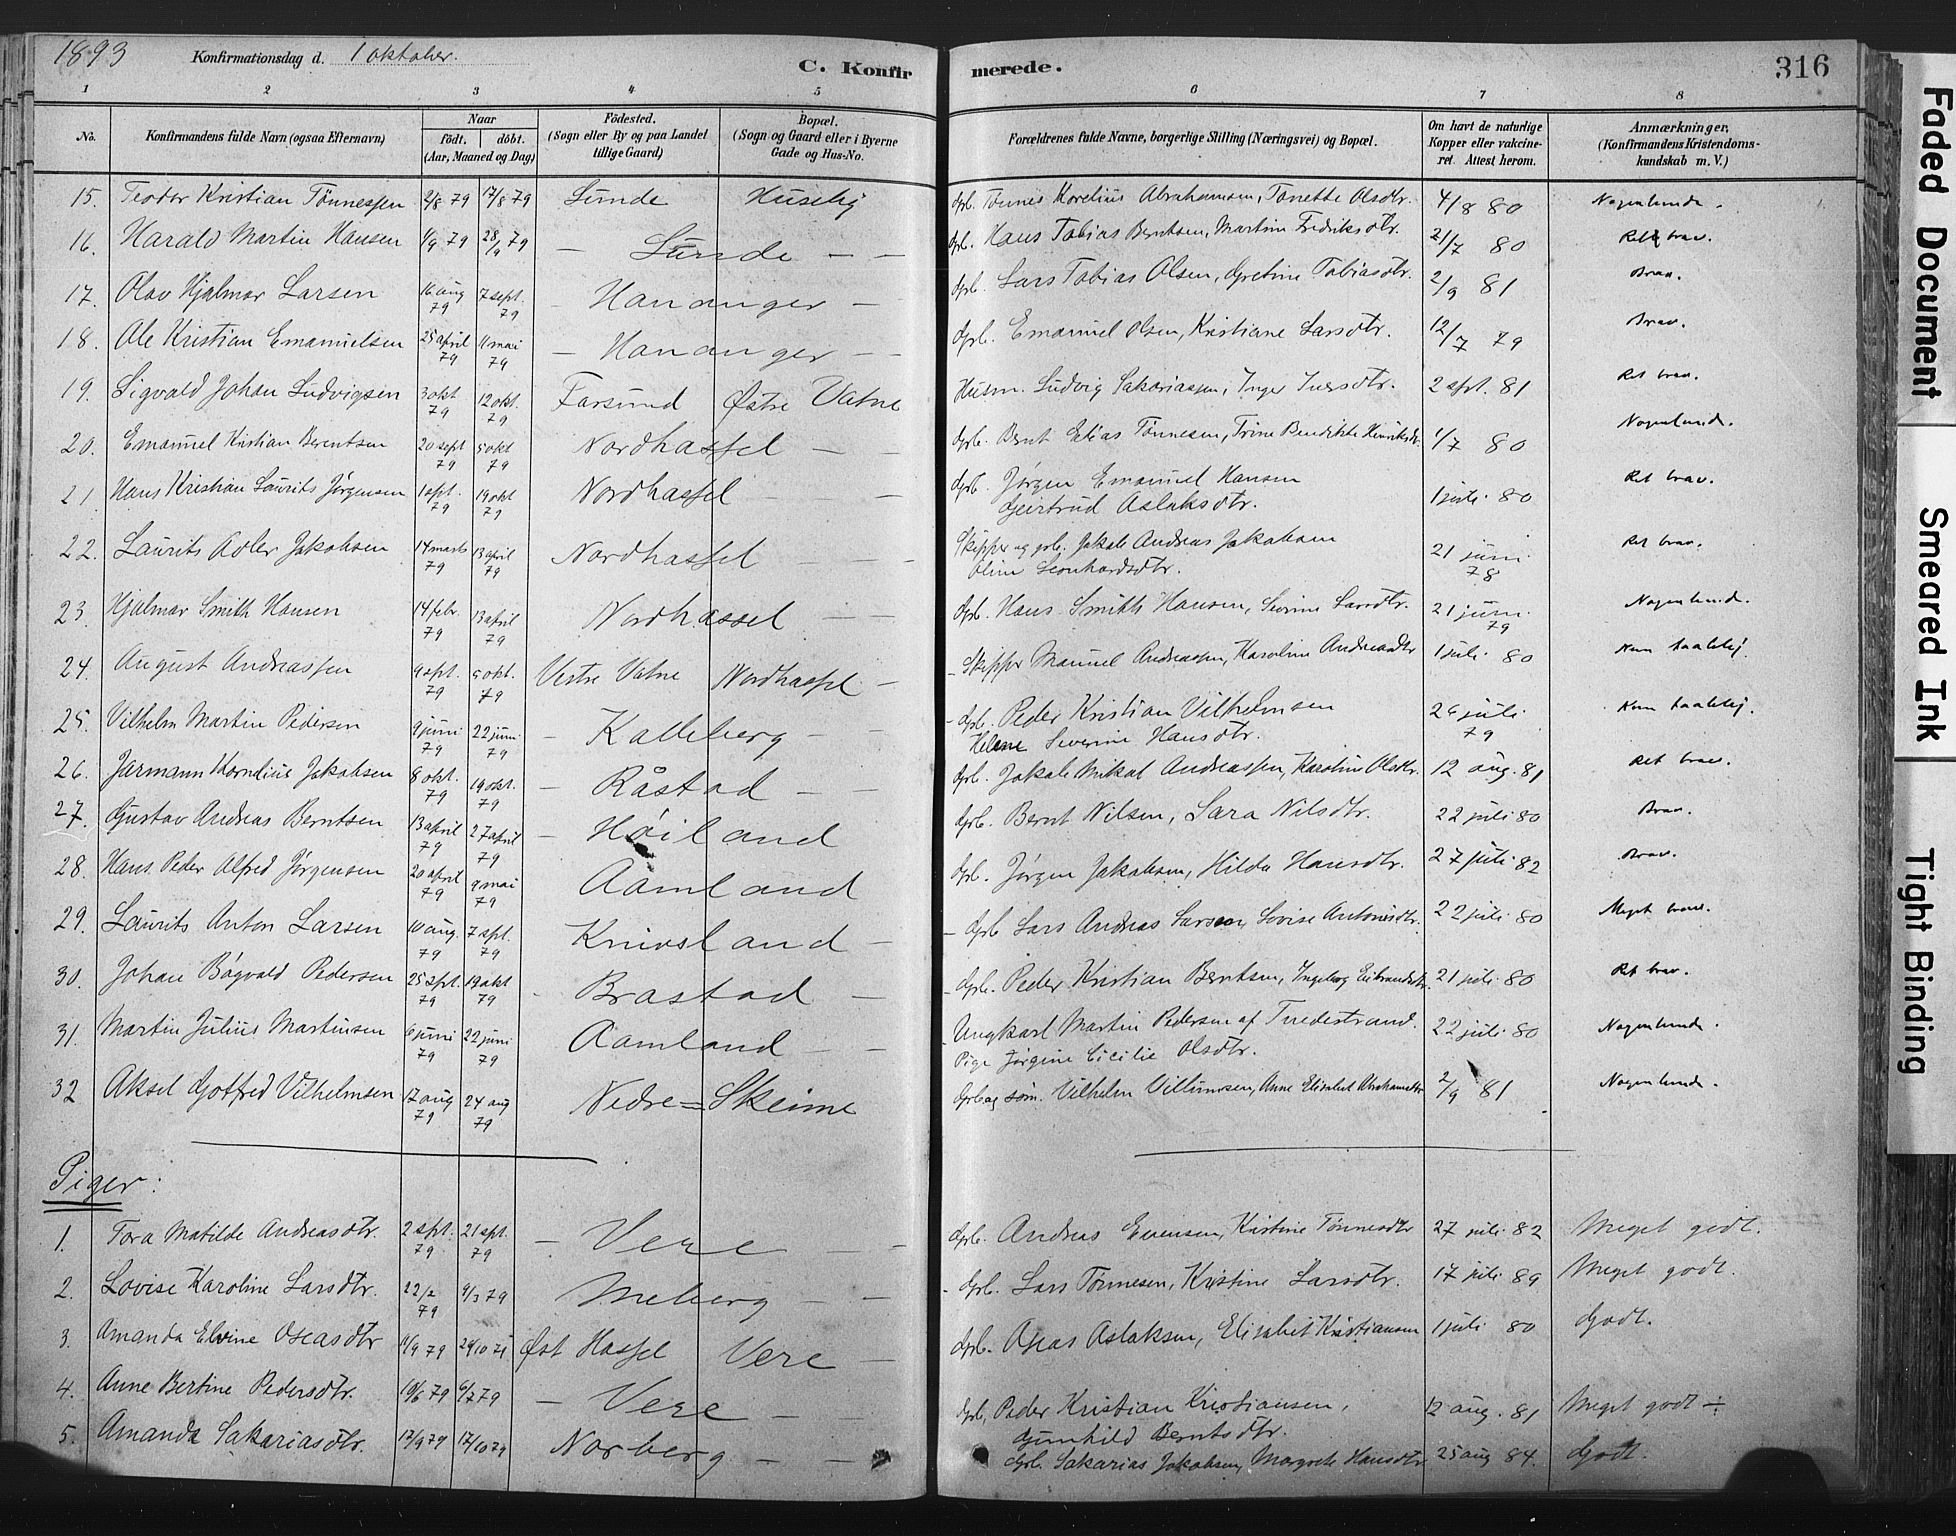 1893 Konfirmationsdag d. 1 oktober. C. Konfirmerede. 316
1 2 3 4 5 6 7 8
No. Konfirmandens fulde Navn (ogsaa Efternavn) Naar født. døbt. (Aar, Maaned og Dag) Fødested. (Sogn eller By og paa Landet tillige Gaard) Bopæl. (Sogn og Gaard eller i Byerne Gade og Hus-No. Forældrenes fulde Navne, borgerlige Stilling (Næringsvei) og Bopæl. Om havt de naturlige Kopper eller vakcineret. Attest herom. Anmærkninger, (Konfirmandens Kristendomskundskab m. V.)
15. Teodor Kristian Tønnessen 2/8 79 17/8 79 Sunde Huseby Grb. Tønnes Kornelius Abrahamsen, Tonette Olsdtr. 4/8 80 Nogenlunde.
16. Harald Martin Hansen 1/9 79 28/9 79 – Sunde – – Grb. Hans Tobias Berntsen, Martine Fredriksdtr. 21/7 80 Ret brav.
17. Olav Hjalmar Larsen 16 aug 79 7 sept. 79 – Hananger – Grb. Lars Tobias Olsen, Gretine Tobiasdtr. 2/9 81 Brav.
18. Ole Kristian Emanuelsen 25 april 79 11 mai 79 – Hananger – – Grb. Emanuel Olsen, Kristiane Larsdtr. 12/7 79 Brav.
19. Sigvald Johan Ludvigsen 3 okt 79 12 okt. 79 Farsund Østre Vatne Husm. Ludvig Sakariassen, Inger Iversdtr. 2 spt. 81 Ret brav.
20. Emanuel Kristian Berentsen 20 sept 79 5 okt 79 Nordhassel – – Grb. Bernt Elias Tønnesen, Trine Bendikte Henriksdtr. 1/7 80 Nogenlund.
21. Hans Kristian Laurits Jørgensen 1 spt. 79 19 okt 79 Nordhassel – – Grb. Jørgen Emanuel Hansen
Gjertrud Aslaksdtr. 1 juli 80 Ret brav.
22. Laurits Adler Jakobsen 14 marts 79 13 april 79 Nordhassel – – – Skipper og grb. Jakob Andreas Jakobsen
Oline Leonhardsdtr. 21 juni 78 Ret brav.
23. Hjalmar Smith Hansen 14 febr. 79 13 april 79 Nordhassel – – Grb. Hans Smith Hansen, Sevrine Larsdtr. 21 juni 79 Nogenlund.
24. August Andreassen 9 spt. 79 5 okt. 79 Vestre Vatne Nordhassel – – Skipper Manuel Andreassen, Karoline Andreasdtr 1 juli 80 Kun taalelig.
25. Vilhelm Martin Pedersen 9 juni 79 22 juni 79 – Kalleberg – – – Grb. Peder Kristian Vilhelmsen
Helene Severine Hansdtr. 26 juli 79 Kun taalelig.
26. Jarmann Kornelius Jakobsen 8 okt. 79 19 okt. 79 – Råstad – – Grb. Jakob Mikal Andreassen, Karoline Olsdtr. 12 aug. 81 Ret brav.
27. Gustav Andreas Berntsen 13 april 79 27 april 79 – Høiland Grb. Bernt Nilsen, Sara Nilsdtr. 22 juli 80 Brav.
28. Hans Peder Alfred Jørgensen 20 april 79 9 mai 79 Aamland Grb. Jørgen Jakobsen, Hilda Hansdtr. 27 juli 82 Brav.
29. Laurits Anton Larsen 10 aug. 79 7 spt. 79 Knivsland – – Grb Lars Andreas Larsen, Lovise Antonisdtr. 22 juli 80 Meget brav.
30. Johan Bøgvald Pedersen 25 spt. 79 19 okt 79 – Brastad – – Grb. Peder Kristian Berntsen, Ingeborg Eilbrandsdtr. 21 juli 80 Ret brav.
31. Martin Julius Martinsen 6 juni 79 22 juni 79 Aamland – – – Ungkarl Martin Pedersen af Tvedestrand.
Pige Jørgine Cicilie Olsdtr. 22 juli 80 Nogenlunde.
32 Aksel Gotfred Vilhelmsen 17 aug 79 24 aug 79 Nedre = Skeime Grb og søm. Vilhelm Villumsen, Anne Elisabet Abrahamsdtr 2/9 81 Nogenlunde.
Piger:
1. Tora Matilde Andreasdtr. 2 spt. 79 21 spt. 79 – Vere – – Grb. Andreas Evensen, Kristine Tønnesdtr 27 juli 82 Meget godt.
2. Lovise Karoline Larsdtr. 22/2 79 9/3 79 Meberg – – – Grb. Lars Tønnesen, Kristine Larsdtr. 17 juli 89 Meget godt
3. Amanda Elvine Oseasdtr 79 Øst Hassel Vere – Grb. Oseas Aslaksen, Elisabet Kristiansen 1 juli 80 Godt.
4. Anne Bertine Pedersdtr. 79 79 – Vere – – Grb, Peder Kristian Kristiansen,
Gunhild Berntsdtr. 12 aug. 81 Meget godt ÷
5. Amanda Sakariasdtr. 17/9 79 12/10 79 Norberg – – Grb. Sakarias Jakobsen, Margrete Hansdtr 25 aug 84. Godt.
Faded Document
Smeared Ink
Tight Binding